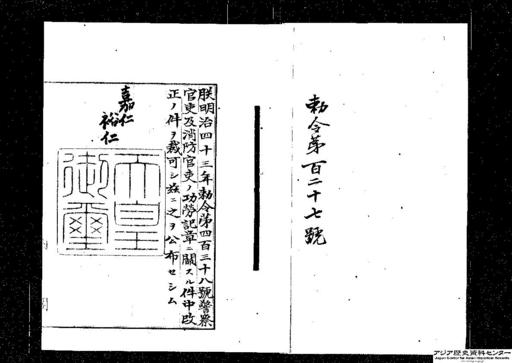 勅令第百二十七號
朕明治四十三年勅令第四百三十八號警察
官吏及消防官吏ノ功勞記章ニ關スル件中改
正ノ件ヲ裁可シ玆ニ之ヲ公布セシム
嘉仁
裕仁
天皇
御璽
アジア歴史資料センター
Japan Center for Asian Historical Records